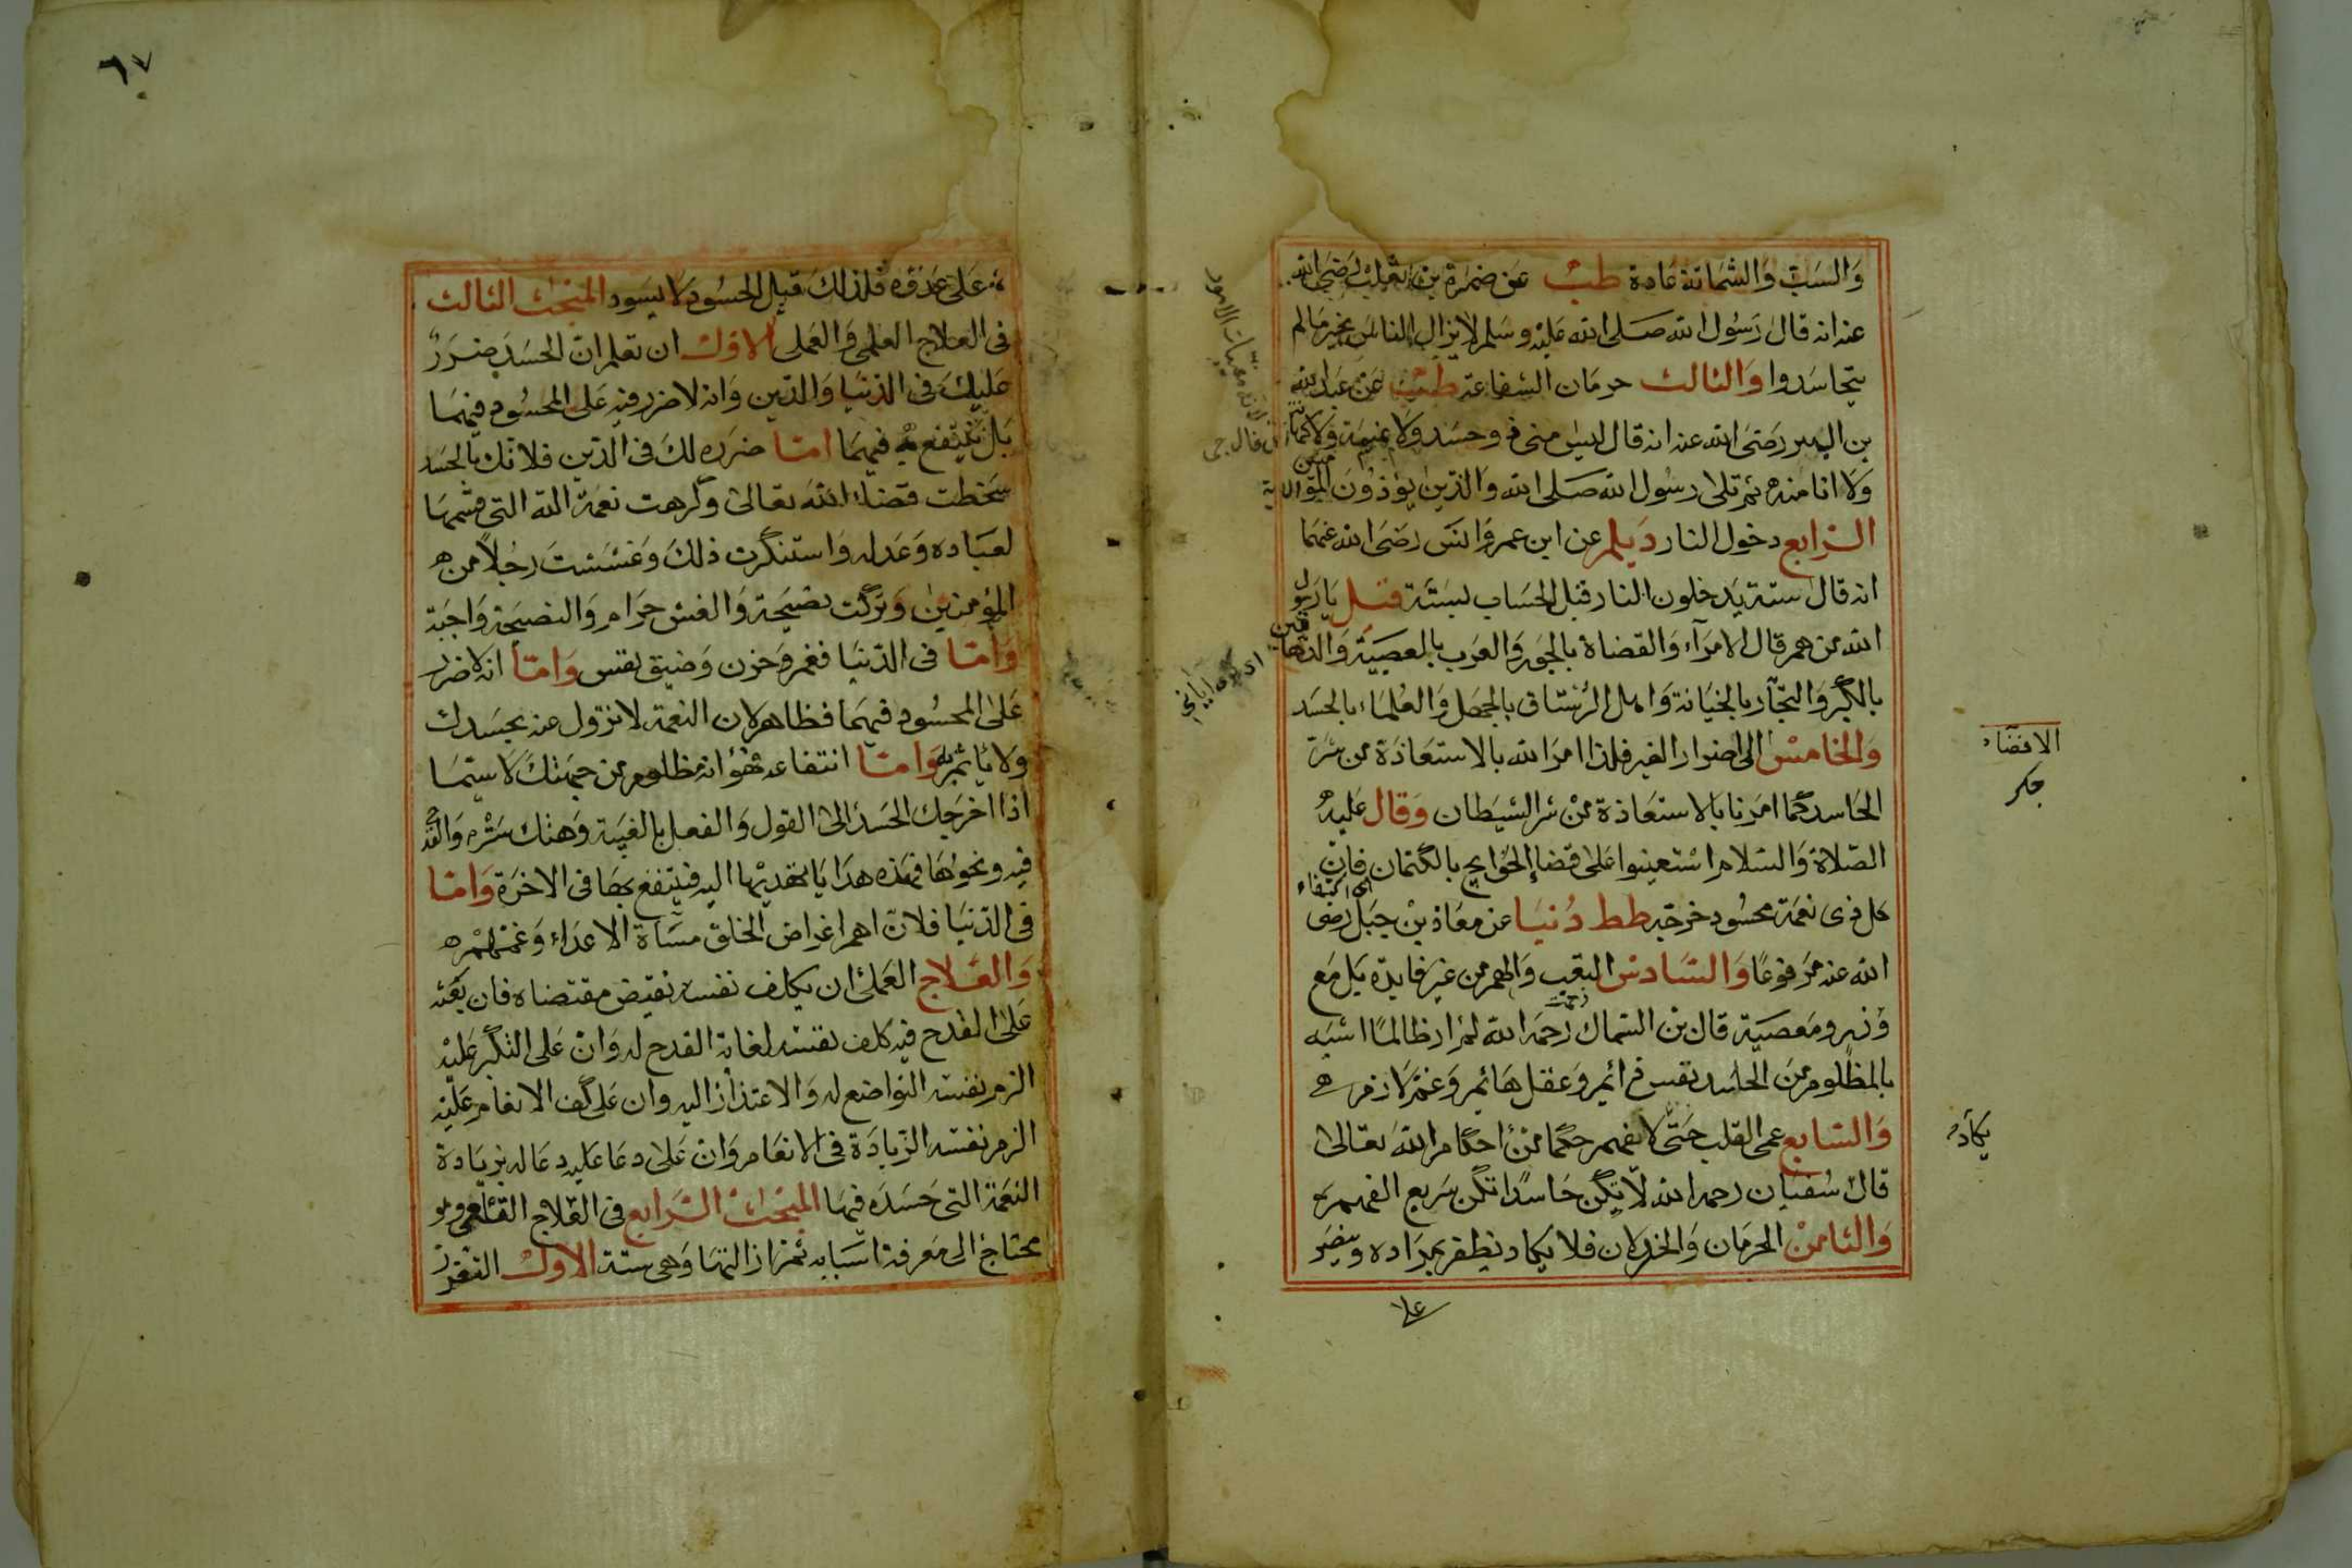 والسب والشماتة عادة طب عن ضمرة بن ثعلبة رضي الله
عنه انه قال رسول الله صلى الله عليه وسلم لا يزال الناس بخير ما لم
يتحاسدوا والثالث حرمان الشفاعة طب عن عبد الله
بن البسر رضى الله عنه انه قال ليس منى ذو حسد ولا نميمة ولا كهانة
ولا انا منه ثم تلى رسول الله صلى الله والذين يؤذون المؤمنين الاية
الرابع دخول النار ديلم عن ابن عمر وانس رضى الله عنهما
انه قال ستة يدخلون النار قبل الحساب بستة قيل يا رسول
الله من هم قال الامراء والقضاة بالجور والعرب بالعصبية والدهاقين
بالكبر والتجار بالخيانة واهل الرستاق بالجهل والعلماء بالحسد
والخامس الى اضرار الغير فلذا امر الله بالاستعاذة من شر
الحاسد كما امرنا بالاستعاذة من شر الشيطان وقال عليه
الصلاة والسلام استعينوا على قضاء الحوايج بالكتمان فان
اى اخفاء
كل ذى نعمة محسود خرجه طط دنيا عن معاذ بن جبل رضى
الله عنه مرفوعا والسادس التعب والهم من غير فايدة بل مع
وزر ومعصية قال بن السماك رحمه الله لم ار ظالما اشبه
بالمظلوم من الحاسد نفس دائم وعقل هائم وغم لازم
والسابع عمى القلب حتى لا يفهم حكما من احكام الله تعالى
قال سفيان رحمه الله لا تكن حاسدا تكن سريع الفهم
والثامن الحرمان والخذلان فلا يكاد يظفر بمراده وينصر
على
الافضاء
جكر
يكاد
٦٧
على عدوه فلذلك قيل الحسود لا يسود المبحث الثالث
فى العلاج العلمى والعملى الاول ان تعلم ان الحسد ضرر
عليك فى الدنيا والدين وانه لا ضرر فيه على المحسود فيهما
بل ينتفع به فيهما اما ضرره لك فى الدين فلانك بالحسد
سخطت قضاء الله تعالى وكرهت نعمة الله التى قسمها
لعباده وعدله واستنكرت ذلك وغششت رجلا من
المؤمنين وتركت نصيحة والغش حرام والنصيحة واجبة
واما فى الدنيا فغم وحزن وضيق نفس واما انه لا ضرر
على المحسود فيهما فظاهر لان النعمة لا تزول عنه بحسدك
ولا يأثم به واما انتفاعه فهو انه مظلوم من جهتك لا سيما
اذا اخرجك الحسد الى القول والفعل بالغيبة وهتك ستره والقدح
فيه ونحوها فهذه هدايا تهديها اليه فينتفع بها فى الاخرة واما
فى الدنيا فلان اهم اغراض الخلق مساءة الاعداء وغمهم
والعلاج العملى ان يكلف نفسه نقيض مقتضاه فان بعثه
على القدح فيه كلف نفسه لغاية القدح له وان على التكبر عليه
الزم نفسه التواضع له والاعتذار اليه وان على كف الانعام عليه
الزم نفسه الزيادة فى الانعام وان على دعا عليه دعا له بزيادة
النعمة التى حسده فيها المبحث الرابع فى العلاج القلعى وهو
محتاج الى معرفة اسبابه ثم ازالتها وهى ستة الاول التعزز